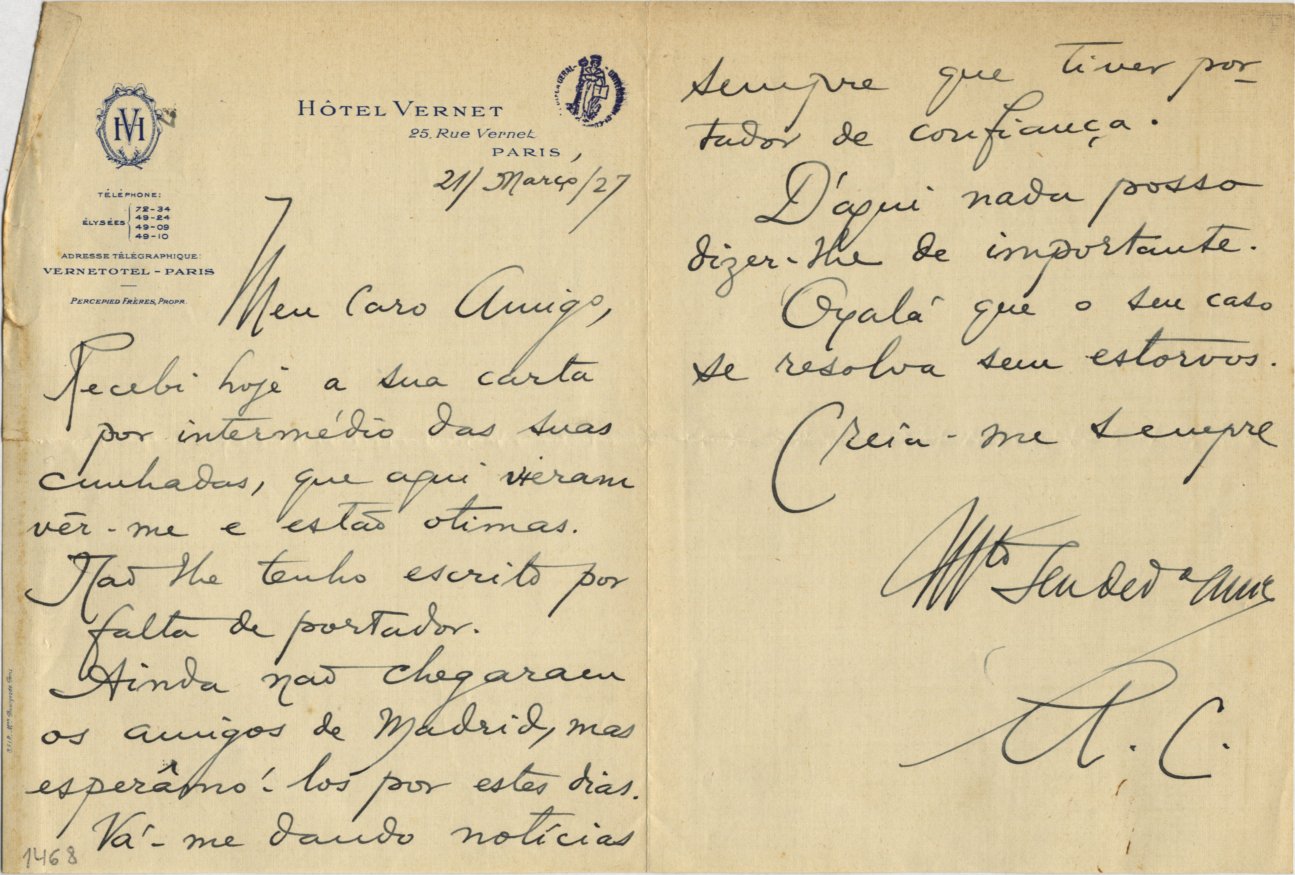 HÔTEL VERNET
25, Rue Vernet
PARIS,
21/Março/27
HV
TÉLÉPHONE:
ÉLYSÉES
72-34
49-24
49-09
49-10
ADRESSE TÉLÉGRAPHIQUE:
VERNETOTEL - PARIS
PERCEPIED FRÈRES, PROPR.
Meu Caro Amigo,
Recebi hoje a sua carta
por intermédio das suas
cunhadas, que aqui vieram
vêr-me e estão otimas.
Não lhe tenho escrito por
falta de portador.
Ainda não chegaram
os amigos de Madrid, mas
esperâmo'-los por estes dias.
Vá-me dando notícias
1468
sempre que tiver por-
tador de confiança.
D'aqui nada posso
dizer-lhe de importante.
Oxalá que o seu caso
se resolva sem estorvos.
Creia-me sempre
Mto Seu dedo amo
A. C.